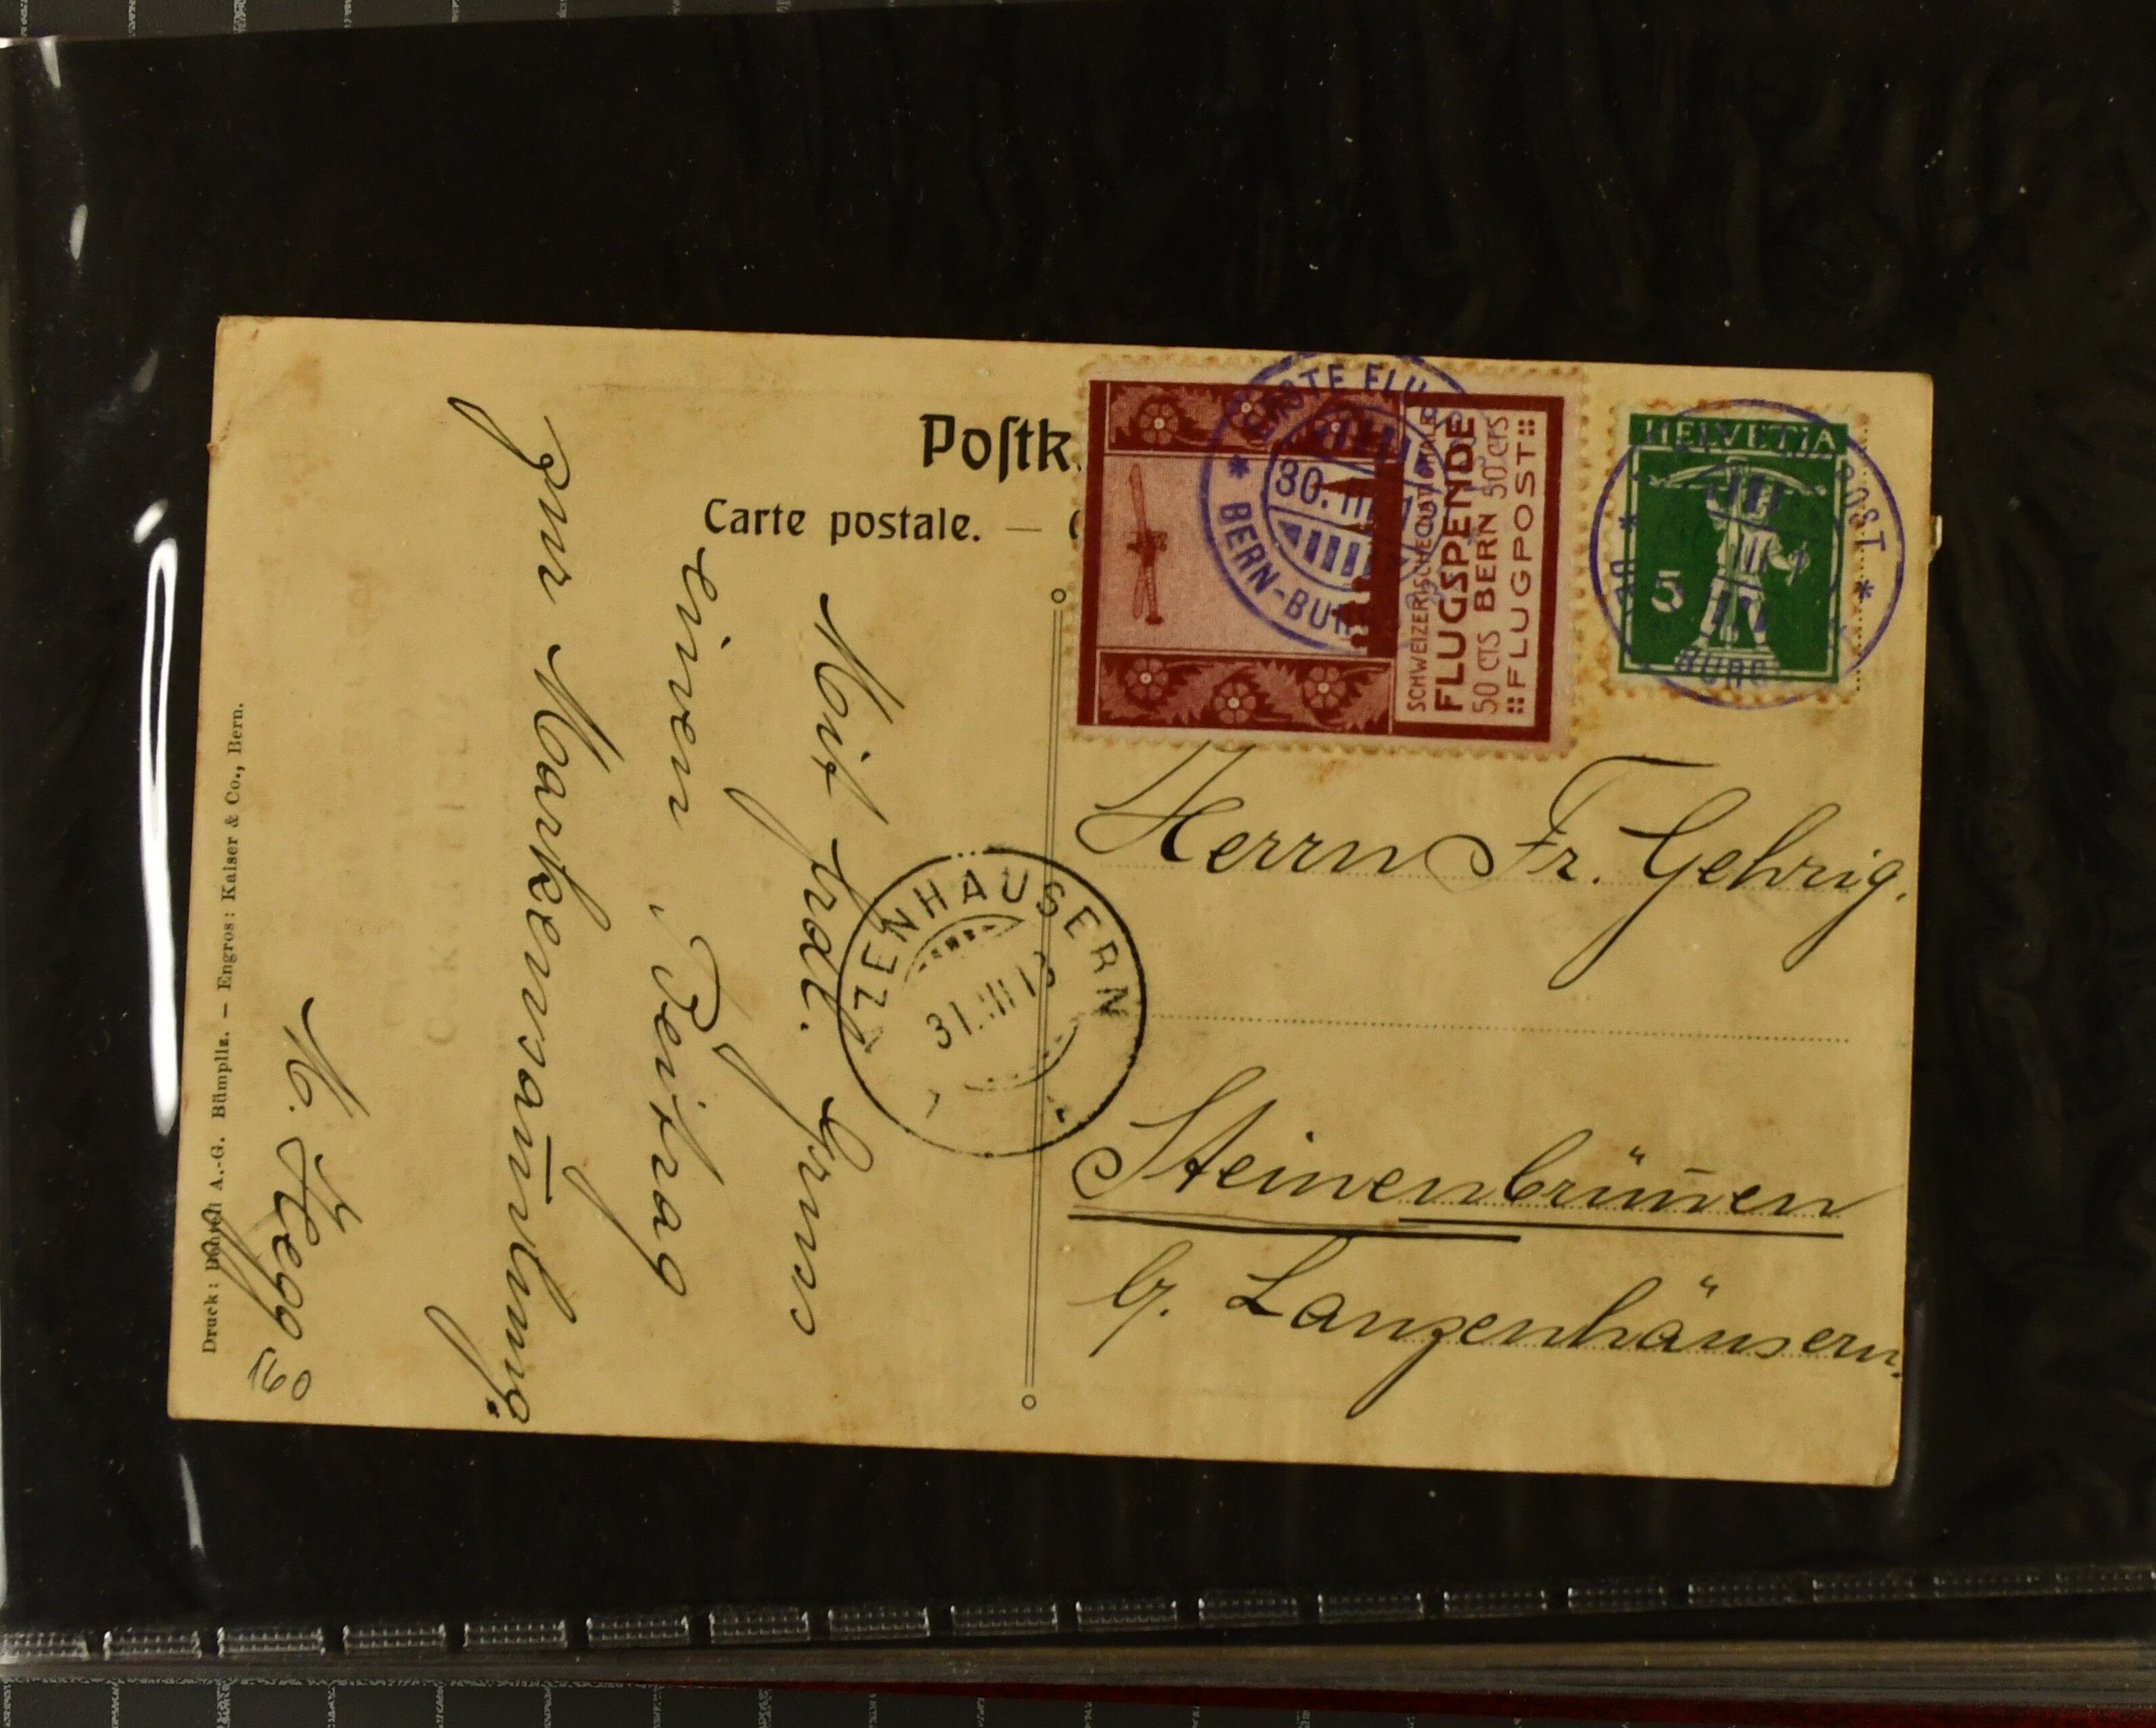 Postk
Carte postale. —
SCHWEIZERISCHE NATIONALE
FLUGSPENDE
50 CTS BERN 50 CTS
FLUGPOST
ERSTE FLUGPOST
30. III
* BERN-BUR
HELVETIA
5
POST *
BURG
ZENHAUSERN
31. III 13
Herrn Fr. Gehrig.
Steinenbrünn̄en
b. Lanzenhäusern.
Mit frdl. Gruss
einen Beitrag
zur Markensam̄lung.
Druck: A.-G. Bümpliz. — Engros: Kaiser & Co., Bern.